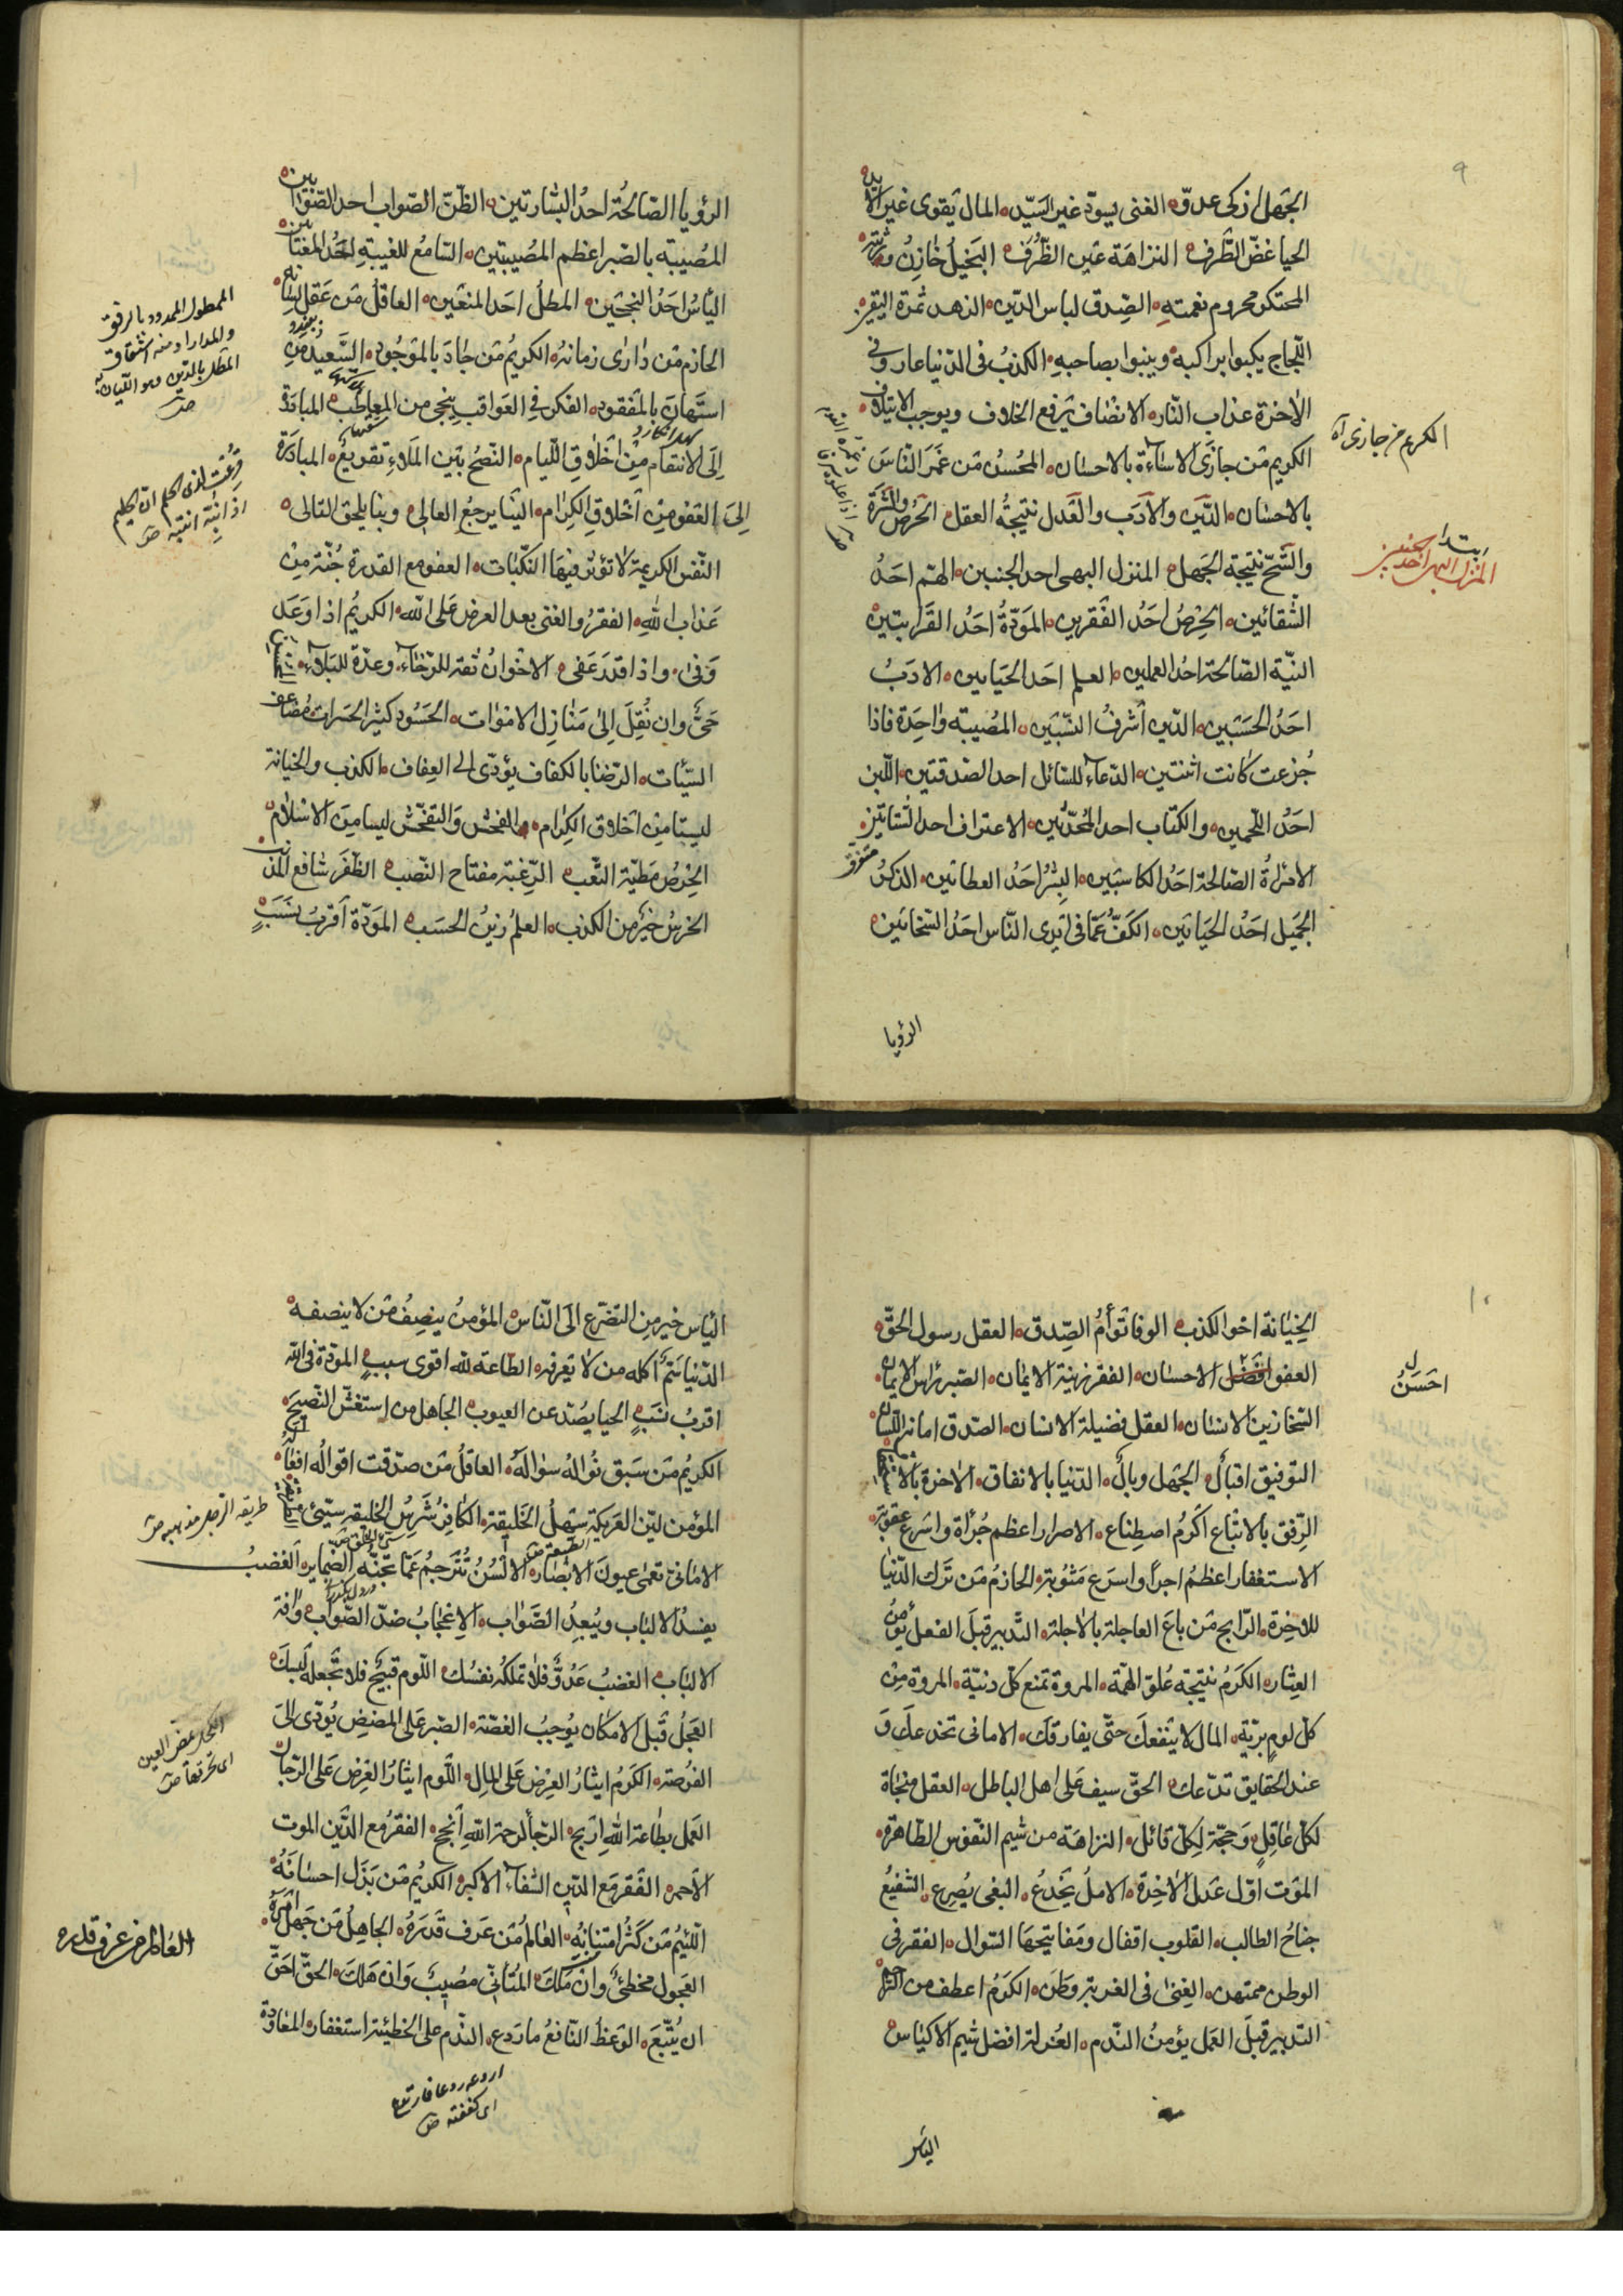 ٩
الجهل ازكى عدوّ الغنى يسوّد غير السّيّد المال يقوى غير الايد
الحيا غضّ الطّرف النزاهة عين الظّرف البخيل خازن ورثته
المحتكر محروم نعمتهِ الصّدق لباس الدّين الزهد ثمرة اليقين
اللّجاج يكبوا براكبه وينبوا بصاحبهِ الكذبُ فى الدّنيا عار وفى
الاخرة عذاب النّار الانصاف يرفع الخلاف ويوجب الايتلاف
الكريم مَن جازَى الاساءة بالاحسان المحسنُ مَن غمَرَ النّاسَ
بالاحسان الدّين والاَدَب والعَدل نتيجةُ العقل الحرصُ والشَّرَهُ
والشّحّ نتيجة الجَهل المنزل البهى احد الجنتين الهَمّ احَدُ
الشّقائين الحِرصُ احَدُ الفقرين المَوَدّةُ احَدُ القَرابتين
النيّة الصّالحة احدُ العملين العلم احَد الحَياتين الادَبُ
احَدُ الحَسَبَين الدّين اَشرفُ النّسَبَين المُصيبَة واحِدَة فاذا
جُزعت كانت اثنتين الدّعاء للسّائل احد الصّدقتين اللّبن
احَدُ اللّحمين والكتاب احد المُحدّثين الاعتراف احد
الامراةُ الصّالحة احَدُ الكاسبَين البِشرُ احَدُ العطائين الذكرُ
الجَميل احَدُ الحَياتَين الكَفّ عَمّا فى اَيدى النّاس احَدُ السّخائين
الكريم من جازى آه
المنزل البهى احد جنتين
الرؤيا
الرؤيا الصّالحَة احَدُ البشارتين الظّنّ الصّواب احد الصّوابين
المُصيبَة بالصّبر اعظم المصُيبتين السّامعُ للغيبةِ احَدُ المغتابين
اليأسُ احَدُ النجحَين المطلُ احَد المنعَين العاقلُ مَن عَقل لسانه
الحازم مَن دارَى زمانهُ الكريمُ مَن جادَ بالموَجُود السَّعيدُ مَن
استَهانَ بالمفقود الفكر في العَواقب ينجى من المعاطب المبادَرة
اِلَى الانتقام مِن اَخلاقِ اللّيام النّصحُ بَين المَلاءِ تقريعٌ المبادَرَة
اِلَى العَفو مِن اَخلاقِ الكِرام الينا يرجعُ الغالى وبنا يلحق التالى
النّفس الكريمَة لا تؤثر فيهَا النّكبات العفو مع القدرة جُنّة مِن
عَذاب اللهِ الفقرُ والغنى بعد العرض عَلى الله الكريمُ اذا وَعَد
وَفى واذا قدَر عَفى الاخوانُ ثقة للرّخاء وعدّة للبلاء
حَىٌّ وان نُقِلَ اِلى مَنازِلِ الاموات الحَسُود كثير الحسَرات مُضاعف
السّيّات الرّضا بالكفاف يؤدّى الى العِفاف الكذب والخيانة
ليسَتا مِن اَخلاق الكِرام الفحش والتفحّش ليسا مِنَ الاسلام
الحِرصُ مَطيّة التّعب الرّغبَة مفتاح النّصب الظّفر شافع المُذنب
الخرسُ خَيرٌ من الكذب العِلمُ زينُ الحسَب المَوَدّة اَقربُ نسَبٍ
الممطول الممدود بالرفق
والمدارا ومنه اشتقاق
١٠
الخِيانة اخو الكذب الوفا تَوأمُ الصِّدق العقل رسول الحَقّ
العفو افضَل الاحسان الفقر زينة الايمان الصّبر رَأس الايمان
السّخا زين الانسان العقل فضيلة الانسان الصّدق امانة اللّسان
التوفيق اقبال الجَهل وبالٌ الدّنيا بالاتفاق الاخرة بالاستحقاق
الرّفق بالاتباع اكرمُ اصطِناع الاصرار اعظم جُرأة واسَرع عقوبَة
الاستغفار اعظمُ اجراً واسرَع مَثوُبة الحازمُ مَن ترَك الدّنيا
للاخِرة الرّابح مَن باعَ العاجلة بالاجلة التّدبير قبلَ الفعل يؤمن
العِثار الكَرَمُ نتيجَة عُلوّ الهمَّة المروة تمنع كلّ دنيّة المروة مِن
كلّ لومٍ بريّة المال لا يَنفعكَ حتّى يفارقكَ الامانى تخدعك وَ
عند الحقايق تدعك الحَقّ سيف عَلى اهل الباطل العقل منجاة
لكلّ عاقلٍ وَحجّة لِكلّ قائل النزاهَة من شيَم النّفوس الطّاهرة
المَوت اوّل عَدل الاخِرة الامل يَخدعُ البغى يُصرع الشّفيعُ
جناحُ الطالب القلوب اقفال ومَفاتيحهَا السّوال الفقر فى
الوطن ممتهن الغِنى فى الغربة وَطن الكرَمُ اعطف من الرّحم
التدبير قبلَ العَمل يؤمنُ النّدم العُزلة افضل شيَم الاكياس
احَسَنُ
الياس
الياس خير مِن التضرّع الَى النّاس المؤمنُ ينصِفُ مَن لا ينصفه
الدّنيا سَمٌّ اكله من لا يَعرفه الطّاعة لله اقوى سببٍ المودّة فى الله
اقربُ نسَبٍ الحيا يصُدّ عن العيوب الجاهل من استغشّ النّصيحَة
الكريمُ مَن سَبق نوُالهُ سُوالَهُ العاقلُ مَن صدّقت اقوالُه افعاله
المؤمن ليّن العَريكة سَهلُ الخَليقة الكافِرُ شَرسُ الخليقه سيّئ
الامانىّ تعمى عيونَ الابصار الالسُن تُترجِمُ عَمّا تجنّه الضّماير الغَضبُ
يفسدُ الالباب ويُبعِدُ الصَّواب الاِعجابُ ضدّ الصّواب وافة
الالباب الغضبُ عَدُوٌّ فلا تملكهُ نفسُك اللّوم قبيحٌ فلا تجعله لَبسكَ
العَجلُ قبلَ الامكان يوُجبُ الغصّة الصّبر عَلى المضضِ يُؤدّى اِلَى
الفُرصة الكَرَمُ ايثارُ العِرض عَلى المالِ اللّوم ايثارُ الغَرض عَلى الرّجال
العَمل بطاعة اللهِ اربح الرّجأ لرحمة اللهِ انجح الفقرُ مع الدّين الموت
الاحمر الفَقر مَع الدَّين الشّقاء الاكبر الكريمُ مَن بَذل احسانَهُ
اللّئيمُ مَن كثُر امتنانِهِ العالمُ مَن عَرف قَدرَهُ الجاهِلُ مَن جَهل امرَهُ
العَجول مخطئٌ وان مَلكَ المُتأنّى مُصيبٌ وَان هلكَ الحَقّ اَحَقّ
ان يُتّبَعَ الوَعظُ النّافعُ ما رَدع النّدَم على الخطيئة استغفار المعاوَدة
العالم من عرف قدره